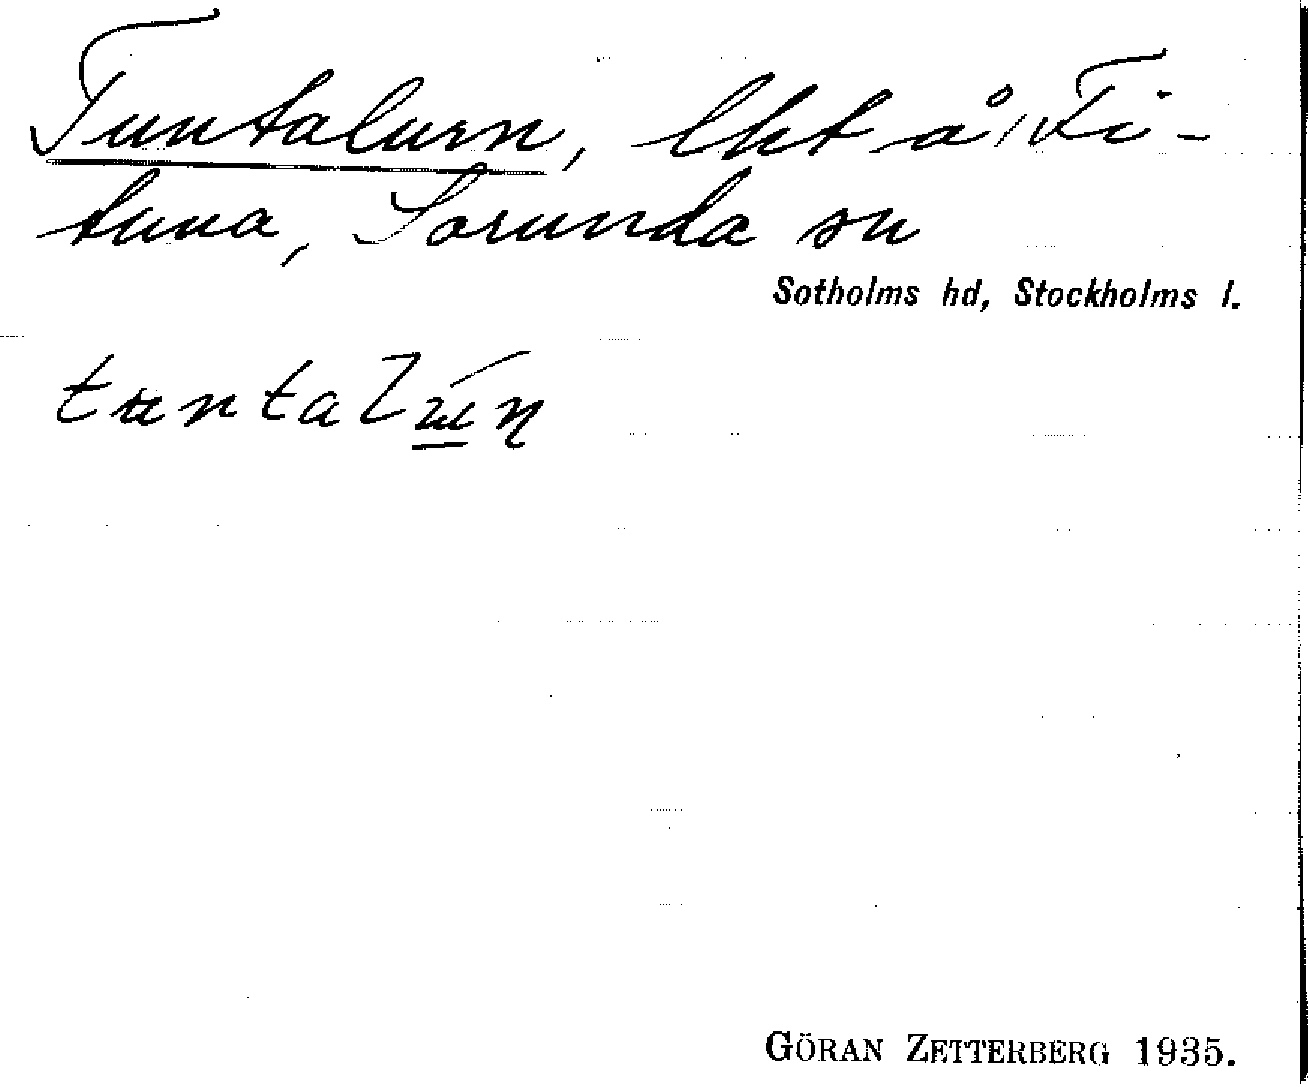 Tuntalurn, lht å Fi-
tuna, Sorunda sn
Sotholms hd, Stockholms l.
GÖRAN ZETTERBERG 1935.